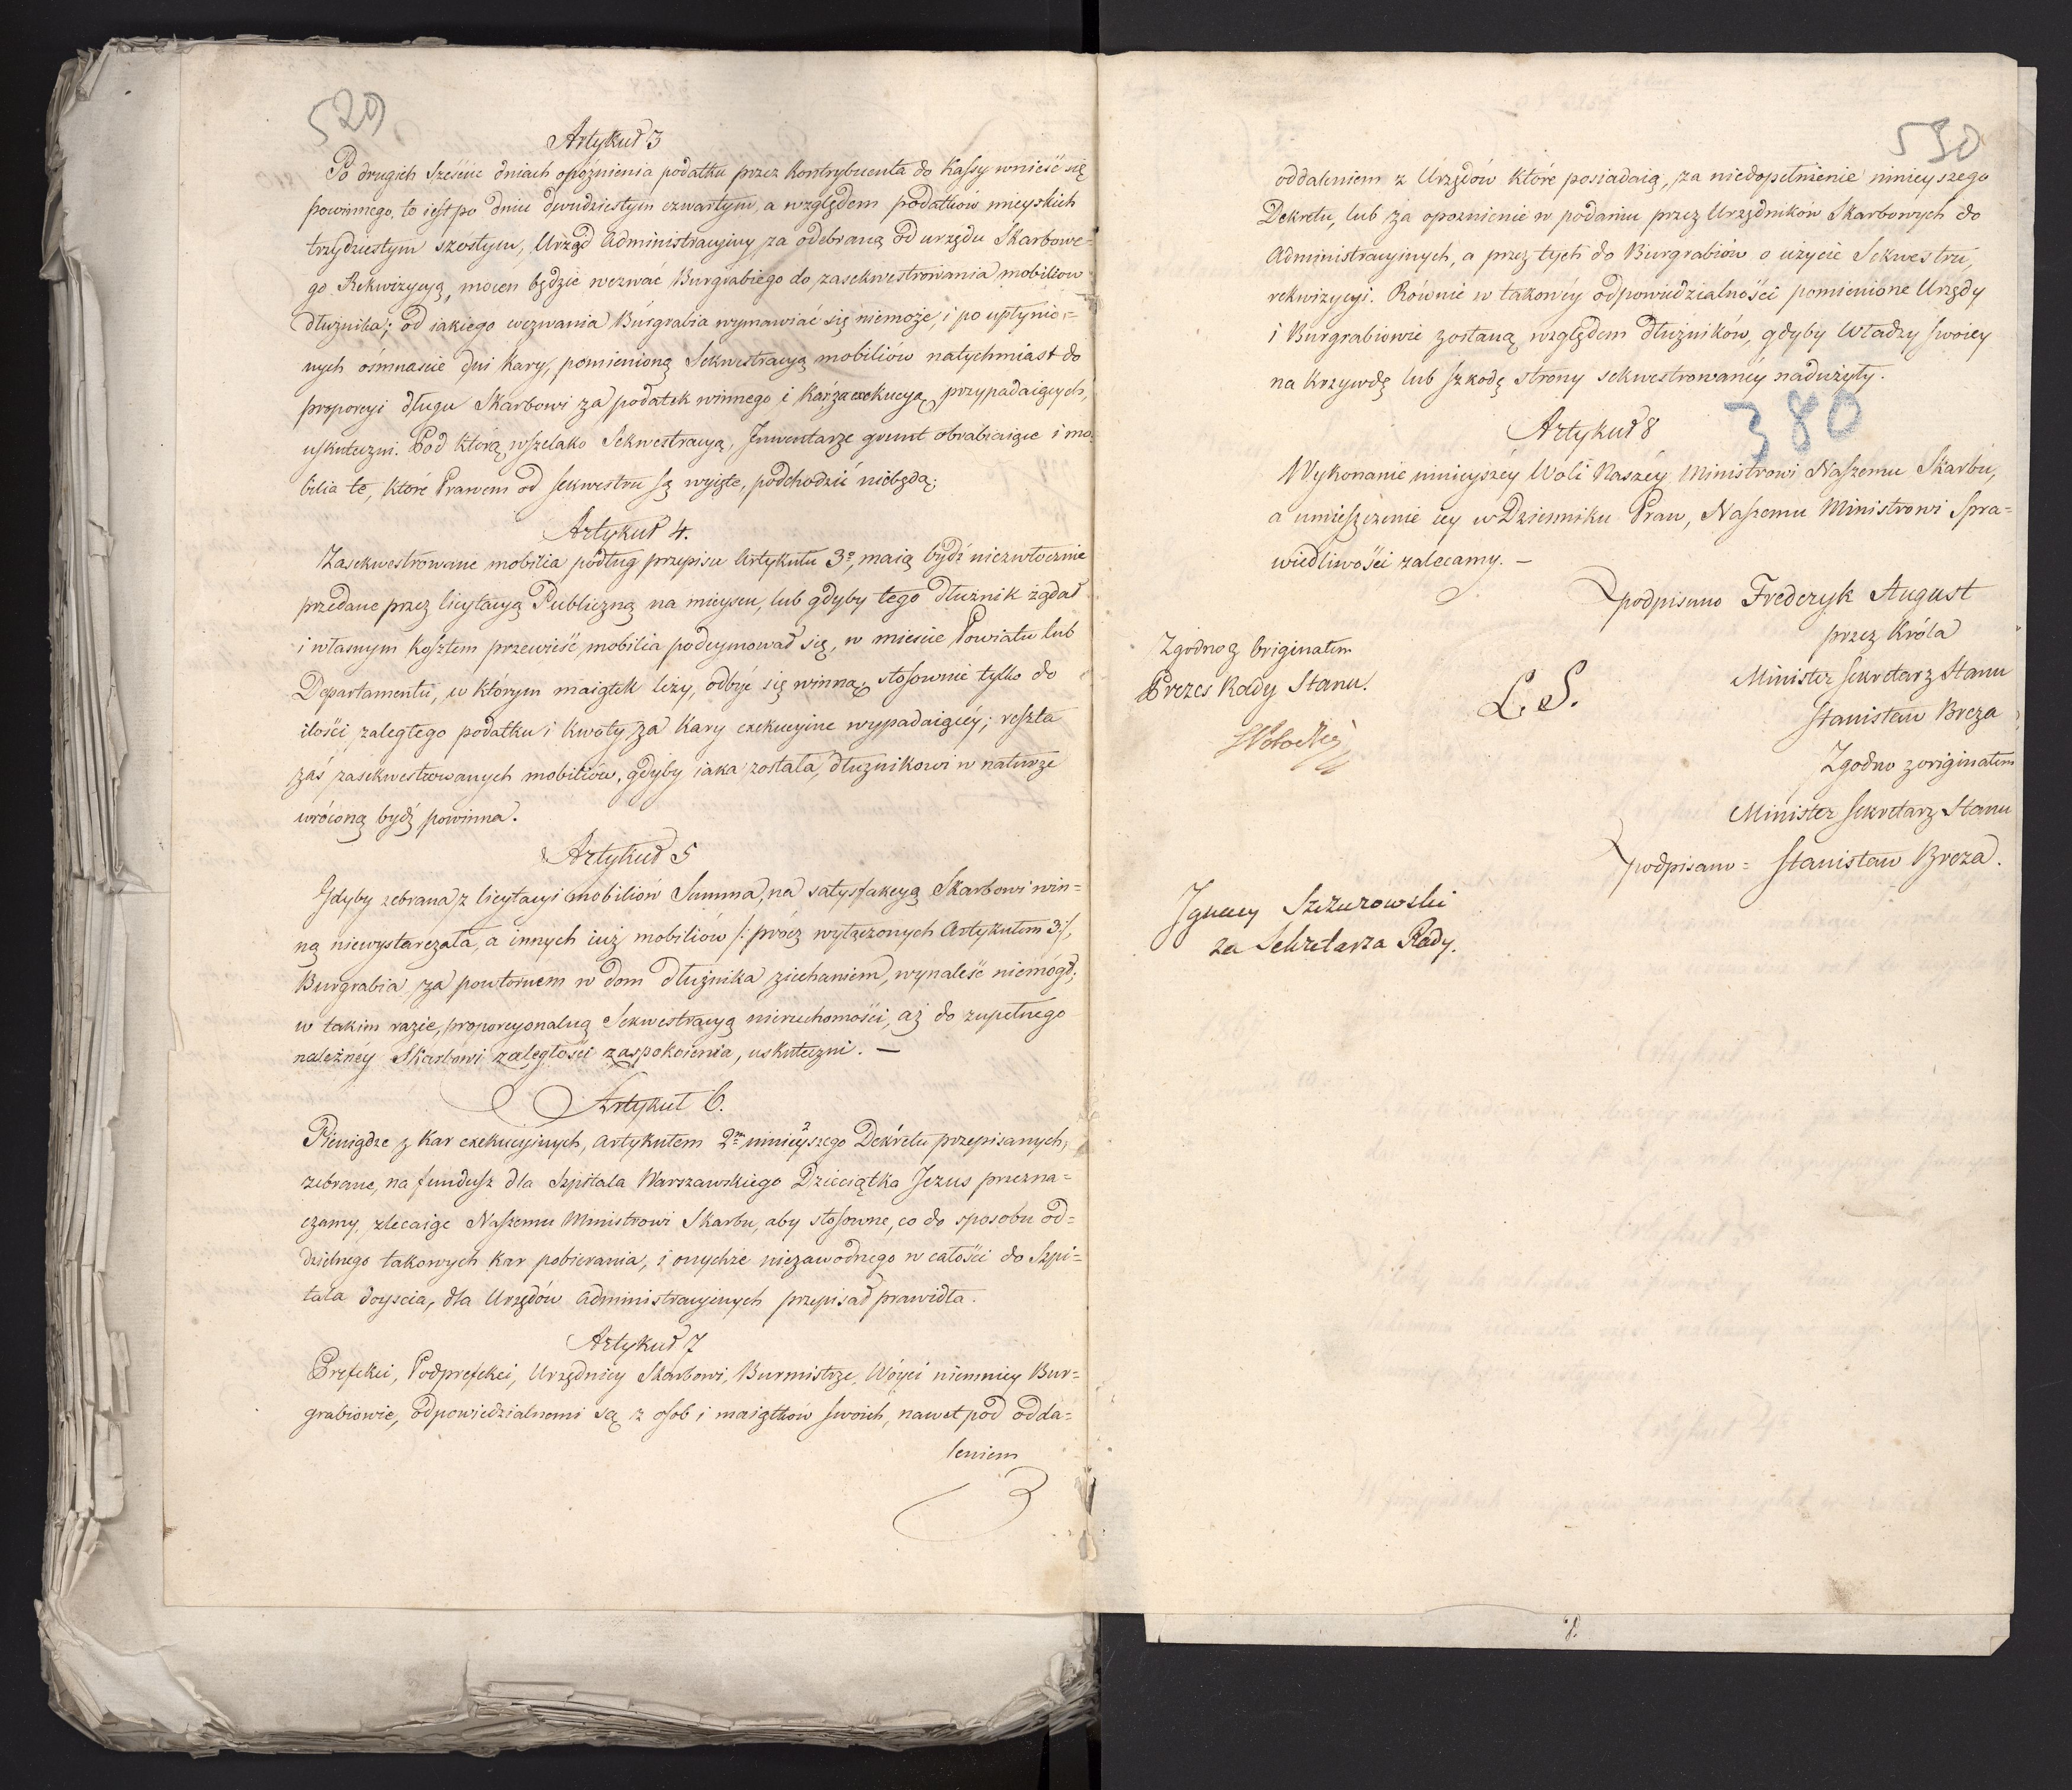 520
Artykuł 3
Po drugich sześciu dniach opóźnienia podatku przez kontrybuenta do Kassy wnieść się
powinnego, to iest po dniu dwudziestym czwartym, a względem podatkow mieyskich
trzydziestym szóstym, Urząd Administracyiny za odebraną od urzędu Skarbowe=
go Rekwizycyą, mocen będzie wezwać Burgrabiego do zasekwestrowania mobiliow
dłużnika; od iakiego wezwania Burgrabia wymawiać się niemoże, i po upłynio=
nych ośmnascie dni kary, pomienioną Sekwestracyą mobiliów natychmiast do
proporcyi długu Skarbowi za podatek winnego i kar za exekucyą przypadaiących,
uskuteczni. Pod którą wszelako Sekwestracyą, Inwentarze grunt obrabiaiące i mo=
bilia te, które Prawem od sekwestru są wyięte, podchodzić niebędą;
Artykuł 4.
Zasekwestrowane mobilia podług przepisu Artykułu 3º, maią bydź niezwłocznie
przedane przez licytacyą Publiczną na mieyscu, lub gdyby tego Dłużnik żądał
i własnym kosztem przewieść mobilia podeymował się, w mieście Powiatu lub
Departamentu, w którym maiątek leży, odbyć się winną; stosownie tylko do
ilości zaległego podatku i kwoty za kary exekucyine wypadaiącéy; reszta
zaś zasekwestrowanych mobiliów, gdyby iaka została, dłużnikowi w naturze
wróconą bydź powinna.
Artykuł 5
Gdyby zebrana z licytacyi mobiliów Summa, na satysfakcyą Skarbowi win=
ną niewystarczała, a innych iuż mobiliów /: prócz wyłączonych Artykułem 3:/,
Burgrabia za powtornem w dom dłużnika ziechaniem, wynaleść niemógł;
w takim razie, proporcyonalną Sekwestracyą nieruchomości, aż do zupełnego
należnéy Skarbowi zaległości zaspokoienia, uskuteczni. —
Artykuł 6.
Pieniądze z kar exekucyinych, Artykułem 2m ninieyszego Dekretu przepisanych,
zebrane, na fundusz dla Szpitala Warszawskiego Dzieciątka Jezus przezna=
czamy, zlecaiąc Naszemu Ministrowi Skarbu, aby stosowne, co do sposobu od=
dzielnego takowych kar pobierania, i onychże niezawodnego w całości do Szpi=
tala doyscia, dla Urzędów Administracyinych przepisał prawidła.
Artykuł 7
Prefekci, Podprefekci, Urzędnicy Skarbowi, Burmistrze, Wóyci niemniey Bur=
grabiowie, odpowiedzialnemi są z osob i maiątków swoich, nawet pod odda=
leniem
530
oddaleniem z Urzędów które posiadaią, za niedopełnienie ninieyszego
Dekretu, lub za opoznienie w podaniu przez Urzędników Skarbowych do
Administracyinych, a przez tych do Burgrabiów o użycie Sekwestru,
rekwizycyi. Równie w takowéy odpowiedzialności pomienione Urzędy
i Burgrabiowie zostaną względem dłużników, gdyby Władzy swoiey
na krzywdę lub szkodę strony sekwestrowanéy nadużyły.
Artykuł 8
380
Wykonanie ninieyszéy Woli Naszéy Ministrowi Naszemu Skarbu,
a umieszczenie iey w Dzienniku Praw, Naszemu Ministrowi Spra=
wiedliwości zalecamy. —
podpisano Frederyk August
przez Króla
Minister Sekretarz Stanu
Stanisław Breza
Zgodno z originałem
Prezes Rady Stanu.
L. S.
Zgodno z originałem
Minister Sekretarz Stanu
podpisano = Stanisław Breza.
Ignacy Szczurowski
za Sekretarza Rady.